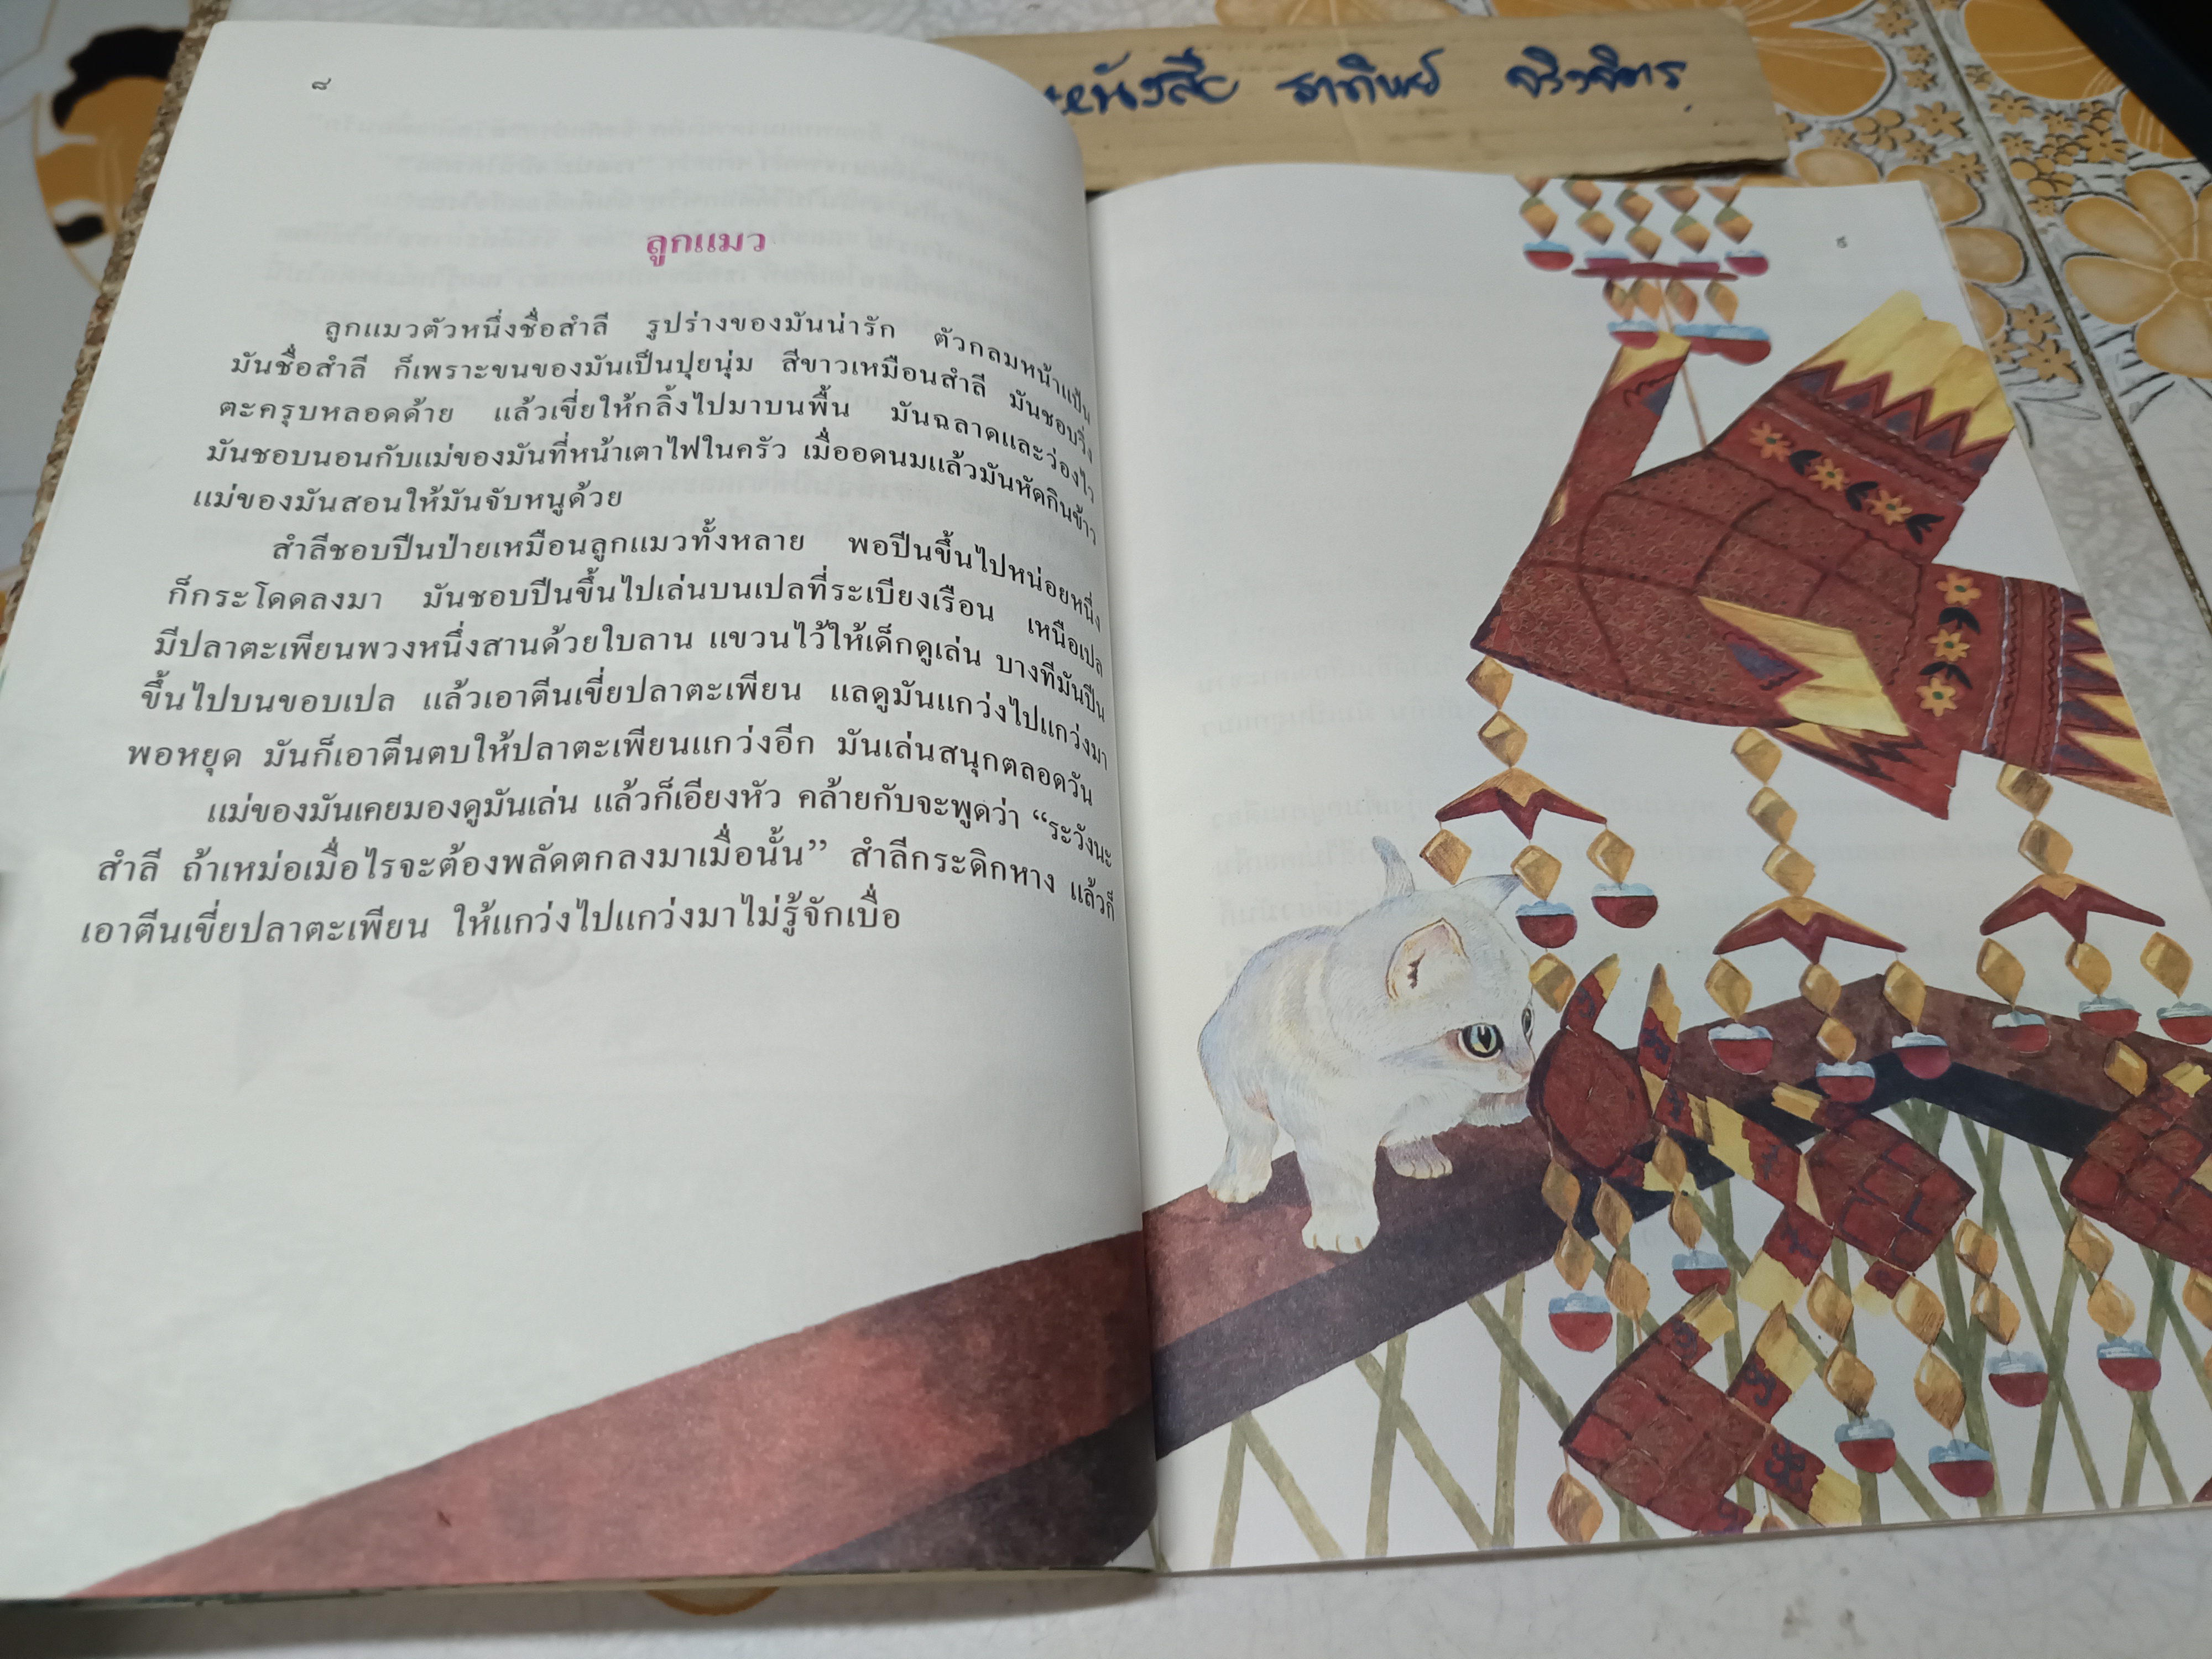 หนังสือ
๘
ลูกแมว
ลูกแมวตัวหนึ่งชื่อสำลี รูปร่างของมันน่ารัก ตัวกลมหน้าแป้น
มันชื่อสำลี ก็เพราะขนของมันเป็นปุยนุ่ม สีขาวเหมือนสำลี มันชอบวิ่ง
ตะครุบหลอดด้าย แล้วเขี่ยให้กลิ้งไปมาบนพื้น มันฉลาดและว่องไว
มันชอบนอนกับแม่ของมันที่หน้าเตาไฟในครัว เมื่ออดนมแล้วมันหัดกินข้าว
แม่ของมันสอนให้มันจับหนูด้วย
สำลีชอบปีนป่ายเหมือนลูกแมวทั้งหลาย พอปีนขึ้นไปหน่อยหนึ่ง
ก็กระโดดลงมา มันชอบปีนขึ้นไปเล่นบนเปลที่ระเบียงเรือน เหนือเปล
มีปลาตะเพียนพวงหนึ่งสานด้วยใบลาน แขวนไว้ให้เด็กดูเล่น บางทีมันปีน
ขึ้นไปบนขอบเปล แล้วเอาตีนเขี่ยปลาตะเพียน แลดูมันแกว่งไปแกว่งมา
พอหยุด มันก็เอาตีนตบให้ปลาตะเพียนแกว่งอีก มันเล่นสนุกตลอดวัน
แม่ของมันเคยมองดูมันเล่น แล้วก็เอียงหัว คล้ายกับจะพูดว่า “ระวังนะ
สำลี ถ้าเหม่อเมื่อไรจะต้องพลัดตกลงมาเมื่อนั้น” สำลีกระดิกหาง แล้วก็
เอาตีนเขี่ยปลาตะเพียน ให้แกว่งไปแกว่งมาไม่รู้จักเบื่อ
๙